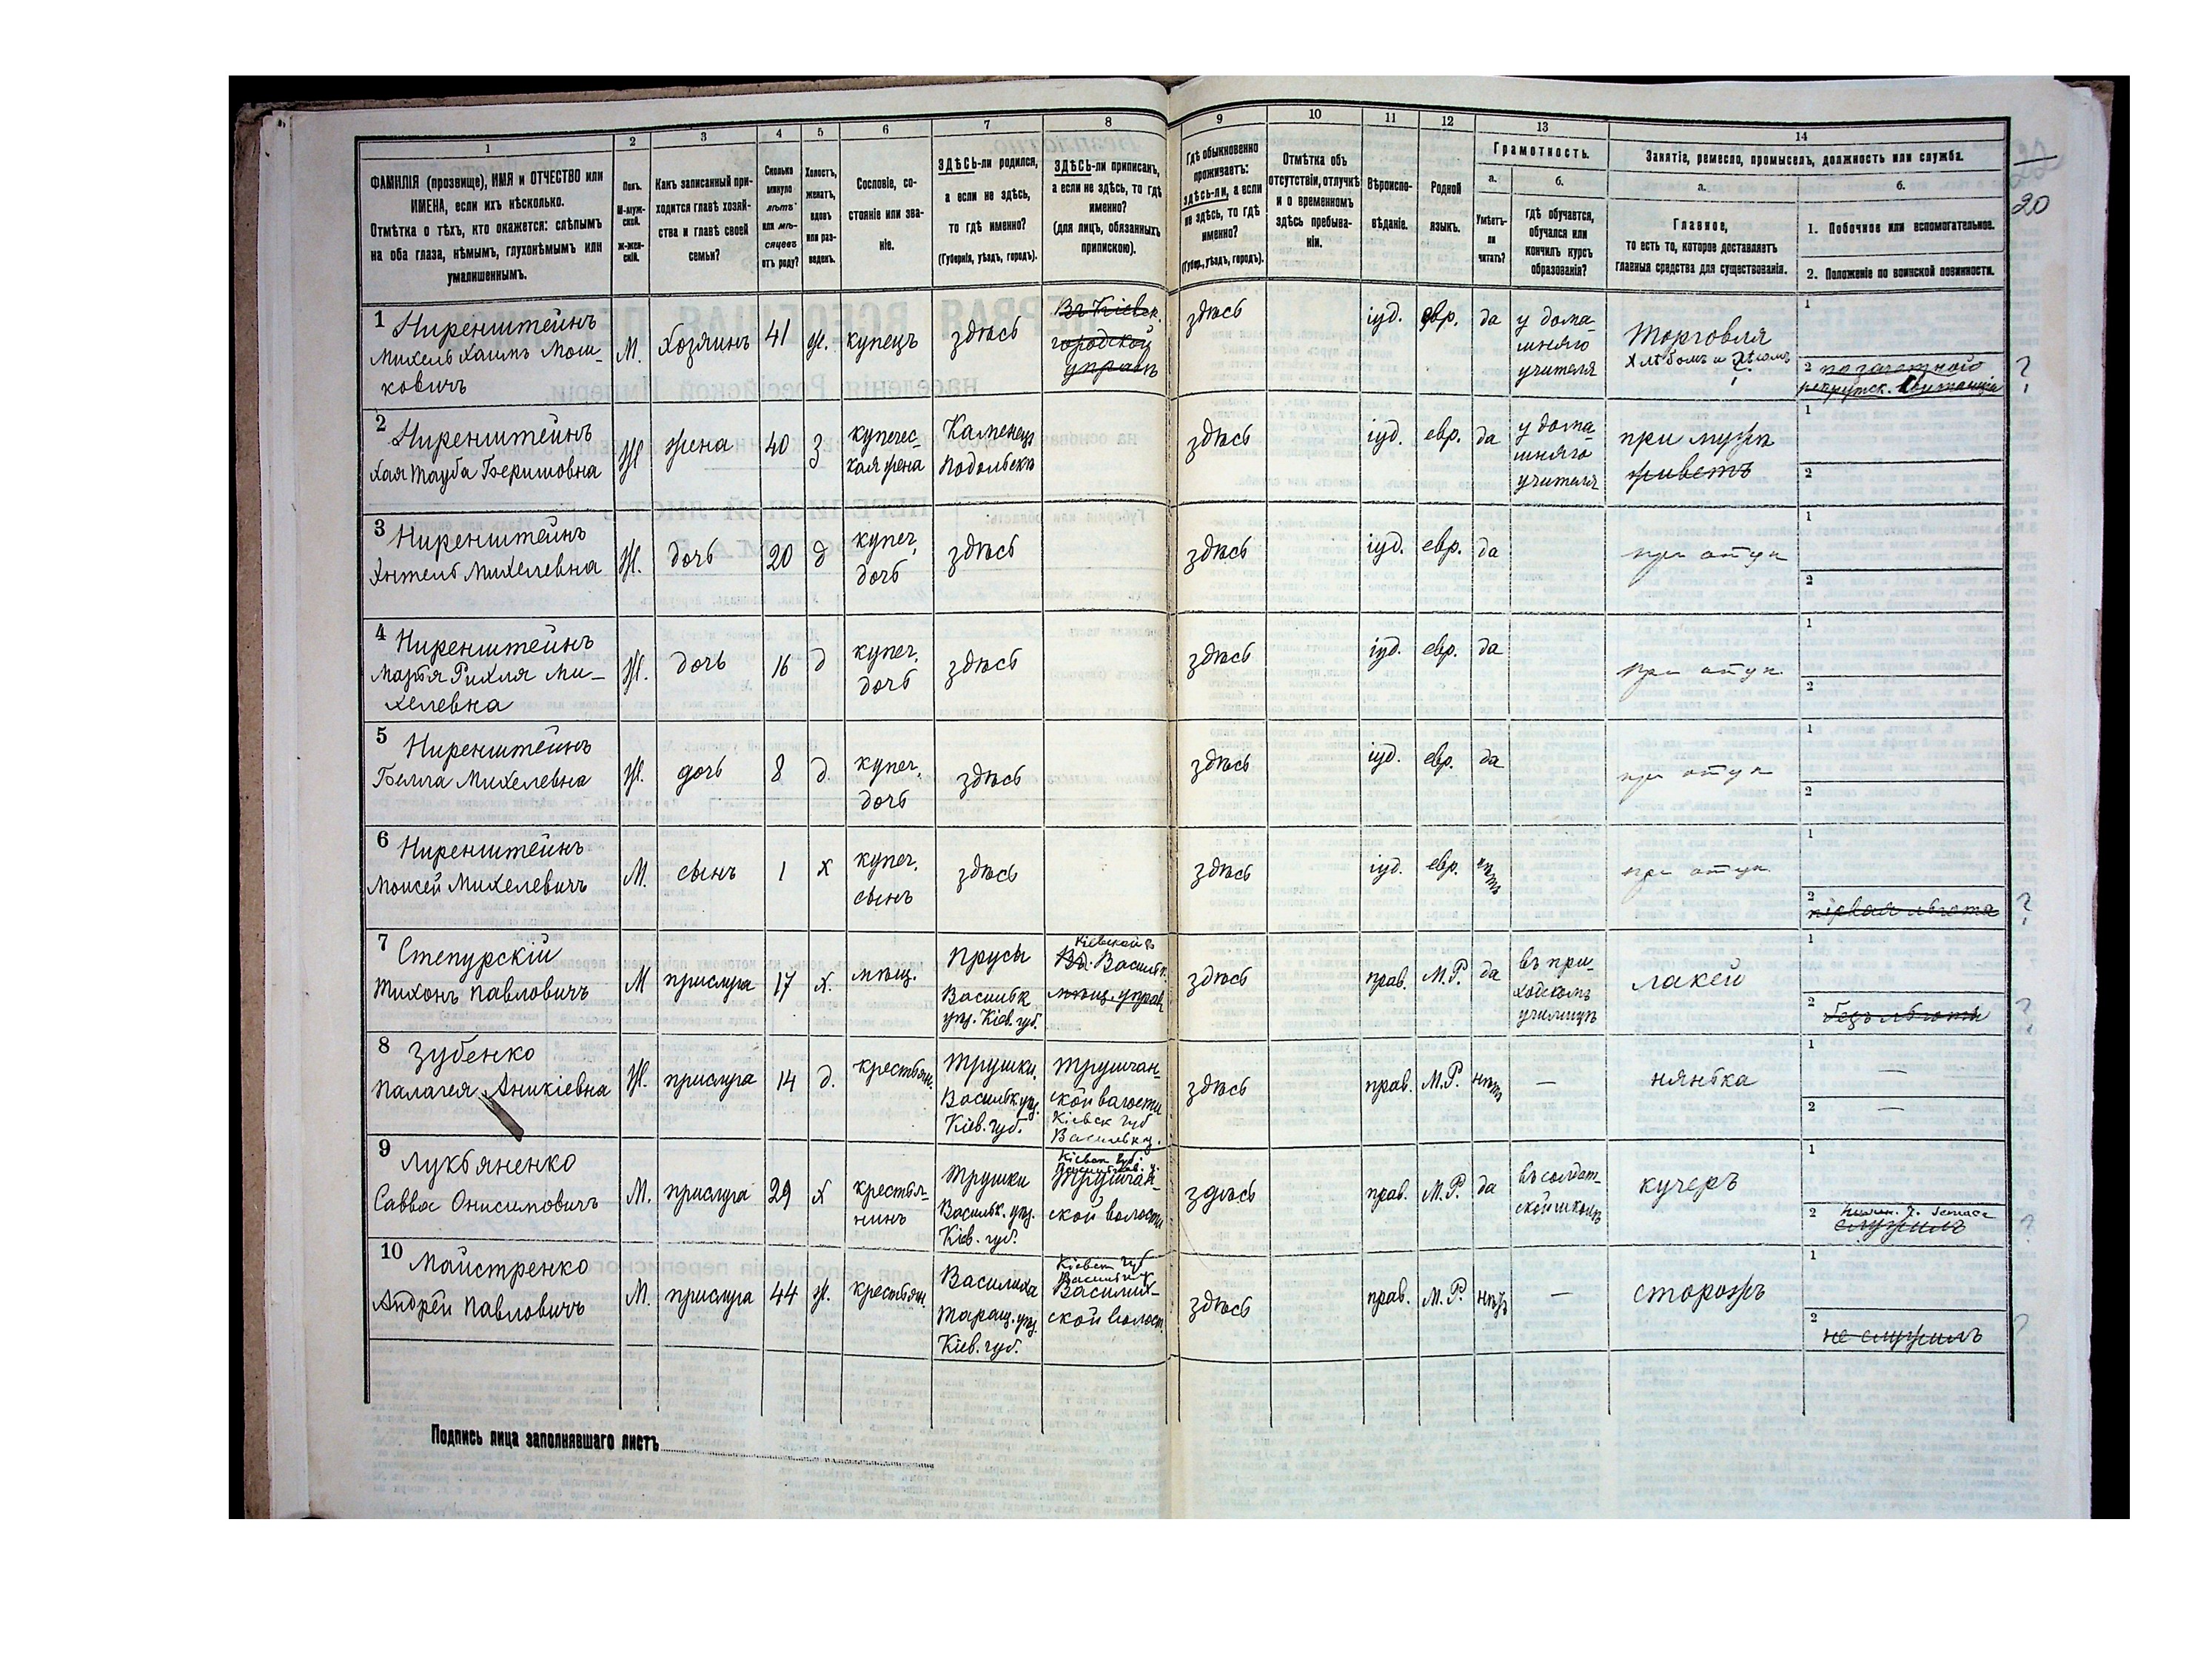 1
2
3
4
5
6
7
8
9
10
11
12
13
14
ФАМИЛІЯ (прозвище), ИМЯ и ОТЧЕСТВО или
ИМЕНА, если ихъ нѣсколько.
Отмѣтка о тѣхъ, кто окажется: слѣпымъ
на оба глаза, нѣмымъ, глухонѣмымъ или
умалишеннымъ.
Полъ.
М-муж-
ской.
Ж-жен-
скій.
Какъ записанный при-
ходится главѣ хозяй-
ства и главѣ своей
семьи?
Сколько
минуло
лѣтъ
или мѣ-
сяцевъ
отъ роду?
Холостъ,
женатъ,
вдовъ
или раз-
веденъ.
Сословіе, со-
стояніе или зва-
ніе.
ЗДѢСЬ-ли родился,
а если не здѣсь,
то гдѣ именно?
(Губернія, уѣздъ, городъ).
ЗДѢСЬ-ли приписанъ,
а если не здѣсь, то гдѣ
именно?
(для лицъ, обязанныхъ
припискою).
Гдѣ обыкновенно
проживаетъ:
здѣсь-ли, а если
не здѣсь, то гдѣ
именно?
(Губер., уѣздъ, городъ).
Отмѣтка объ
отсутствіи, отлучкѣ
и о временномъ
здѣсь пребыва-
ніи.
Вѣроиспо-
вѣданіе.
Родной
языкъ.
Грамотность.
а.
Умѣетъ-
ли
читать?
б.
Гдѣ обучается,
обучался или
кончилъ курсъ
образованія?
Занятіе, ремесло, промыселъ, должность или служба.
а.
Главное,
то есть то, которое доставляетъ
главныя средства для существованія.
б.
1. Побочное или вспомогательное.
2. Положеніе по воинской повинности.
20
1 Ниренштейнъ
Михель Хаимъ Мош-
ковичъ
М.
хозяинъ
41
ж.
купецъ
здѣсь
Въ Кіевск.
городской
управѣ
здѣсь
іуд.
евр.
да
у дома-
шняго
учителя
Торговля
1
2
2 Ниренштейнъ
Хая Тауба Беришовна
Ж
жена
40
З
купечес-
кая жена
Каменецъ
Подольскъ
здѣсь
іуд.
евр.
да
у дома-
шняго
учителя
при мужѣ
живетъ
1
2
3 Ниренштейнъ
Энтель Михелевна
Ж.
дочь
20
д
купеч.
дочь
здѣсь
здѣсь
іуд.
евр.
да
при отцѣ
1
2
4 Ниренштейнъ
Рихля Ми-
хелевна
Ж.
дочь
16
д
купеч.
дочь
здѣсь
здѣсь
іуд.
евр.
да
при отцѣ
1
2
5 Ниренштейнъ
Бейла Михелевна
Ж.
дочь
8
д.
купеч.
дочь
здѣсь
здѣсь
іуд.
евр.
да
при отцѣ
1
2
6 Ниренштейнъ
Моисей Михелевичъ
М.
сынъ
1
х
купеч.
сынъ
здѣсь
здѣсь
іуд.
евр.
нѣтъ
при отцѣ
1
2
первая льгота
7 Степурскій
Тихонъ Павловичъ
М
прислуга
17
х.
мѣщ.
Прусы
Васильк
уѣз. Кіев. губ.
Кіевской г.
Въ. Васильк.
мѣщ. управ.
здѣсь
прав.
М.Р.
да
въ при-
ходскомъ
училищѣ
лакей
1
2 безъ льготы
8 Зубенко
Палагея Аникіевна
Ж.
прислуга
14
д.
крестьян.
Трушки.
Васильк. уѣз.
Кіев. губ.
Трушчан-
ской волости
Кіевск губ
здѣсь
прав.
М.Р.
нѣтъ
—
нянька
1
—
2
—
9 Лукьяненко
Савва Онисимовичъ
М.
прислуга
29
х
крестья-
нинъ
Трушки
Васильк. уѣз.
Кіев. губ.
Кіевск губ.
Трушчан-
ской волости
здѣсь
прав.
М.Р.
да
въ солдат-
ской школѣ
кучеръ
1
2
служилъ
10 Майстренко
Андрей Павловичъ
М.
прислуга
44
ж.
крестьян.
Василиха
Таращ. уѣз.
Кіев. губ.
Кіевск губ
Василих-
ской волост.
здѣсь
прав.
М.Р.
нѣтъ
—
сторожъ
1
2
не служилъ
Подпись лица заполнявшаго листъ